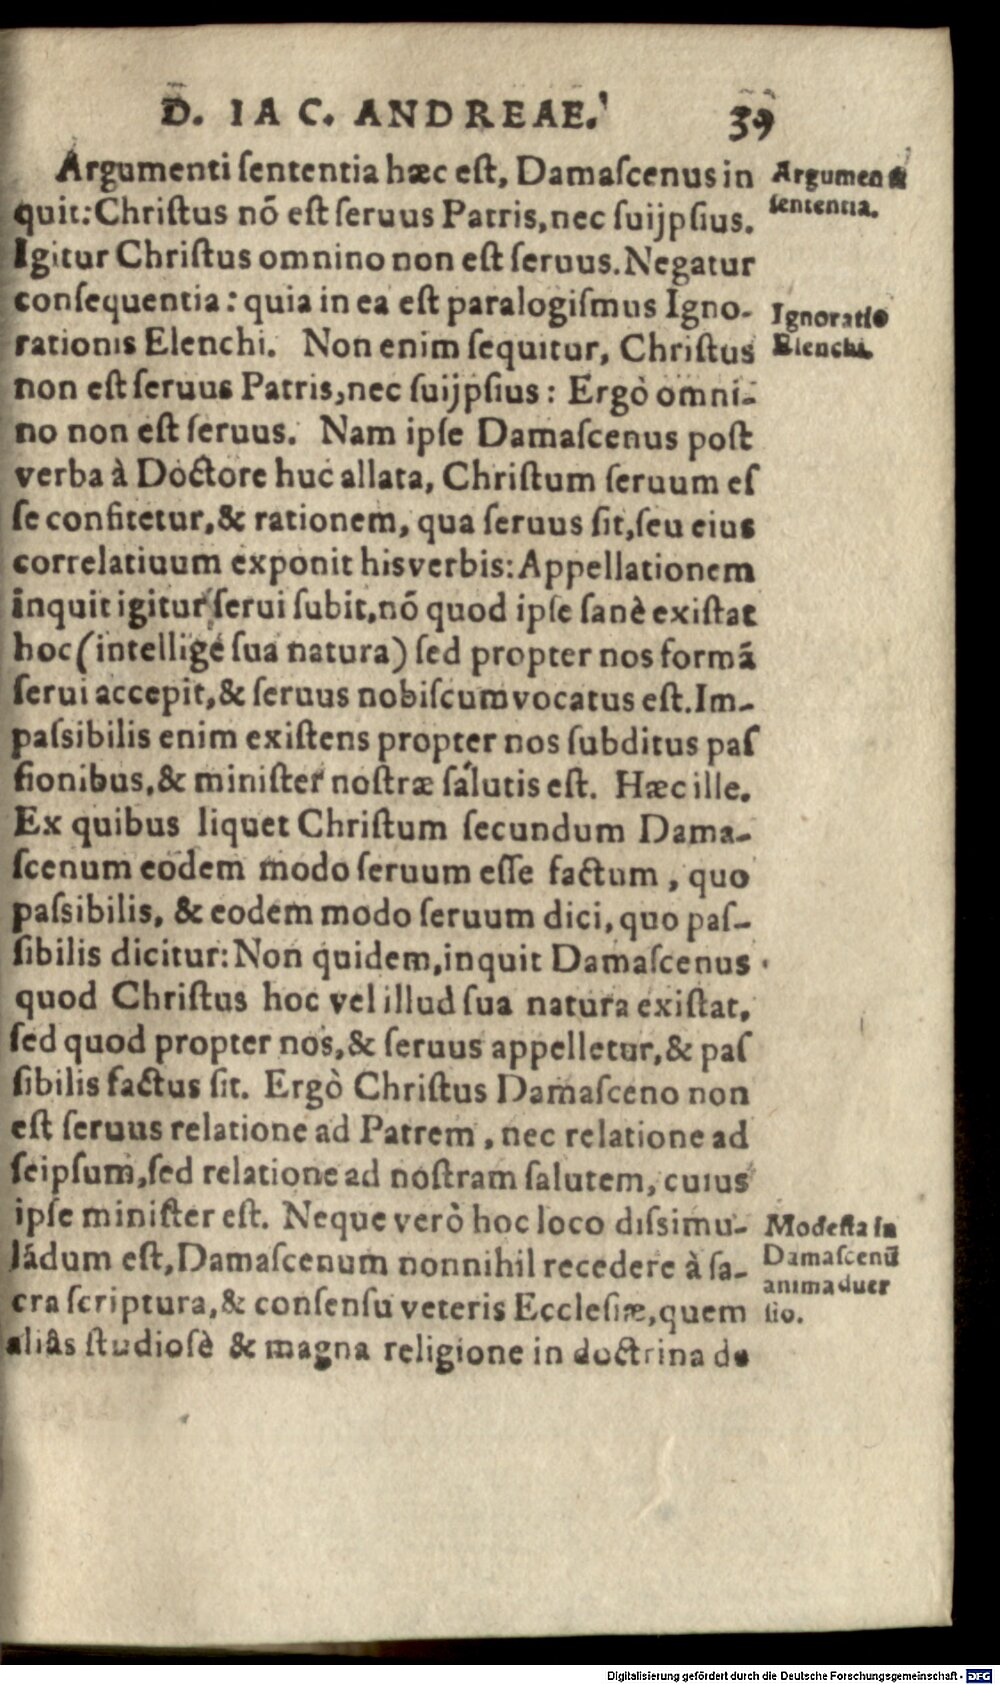 D. IAC. ANDREAE. 39
Argumenti ſententia hæc eſt, Damaſcenus in
quit: Chriſtus nõ eſt ſeruus Patris, nec ſuijpſius.
Igitur Chriſtus omnino non eſt ſeruus. Negatur
conſequentia: quia in ea eſt paralogiſmus Igno-
rationis Elenchi. Non enim ſequitur, Chriſtus
non eſt ſeruus Patris, nec ſuijpſius: Ergò omni-
no non eſt ſeruus. Nam ipſe Damaſcenus poſt
verba à Doctore huc allata, Chriſtum ſeruum eſ
ſe confitetur, & rationem, qua ſeruus ſit, ſeu eius
correlatiuum exponit his verbis: Appellationem
inquit igitur ſerui ſubit, nõ quod ipſe ſanè exiſtat
hoc (intellige ſua natura) ſed propter nos formã
ſerui accepit, & ſeruus nobiſcum vocatus eſt. Im-
paſsibilis enim exiſtens propter nos ſubditus paſ
ſionibus, & miniſter noſtræ ſalutis eſt. Hæc ille.
Ex quibus liquet Chriſtum ſecundum Dama-
ſcenum eodem modo ſeruum eſſe factum, quo
paſsibilis, & eodem modo ſeruum dici, quo paſ-
ſibilis dicitur: Non quidem, inquit Damaſcenus
quod Chriſtus hoc vel illud ſua natura exiſtat,
ſed quod propter nos, & ſeruus appelletur, & paſ
ſibilis factus ſit. Ergò Chriſtus Damaſceno non
eſt ſeruus relatione ad Patrem, nec relatione ad
ſeipſum, ſed relatione ad noſtram ſalutem, cuius
ipſe miniſter eſt. Neque verò hoc loco diſsimu-
lãdum eſt, Damaſcenum nonnihil recedere à ſa-
cra ſcriptura, & conſenſu veteris Eccleſiæ, quem
aliâs ſtudioſè & magna religione in doctrina de
Argumenti
ſententia.
Ignoratio
Elenchi.
Modeſta in
Damaſcenũ
animaduer
ſio.
Digitalisierung gefördert durch die Deutsche Forschungsgemeinschaft - DFG